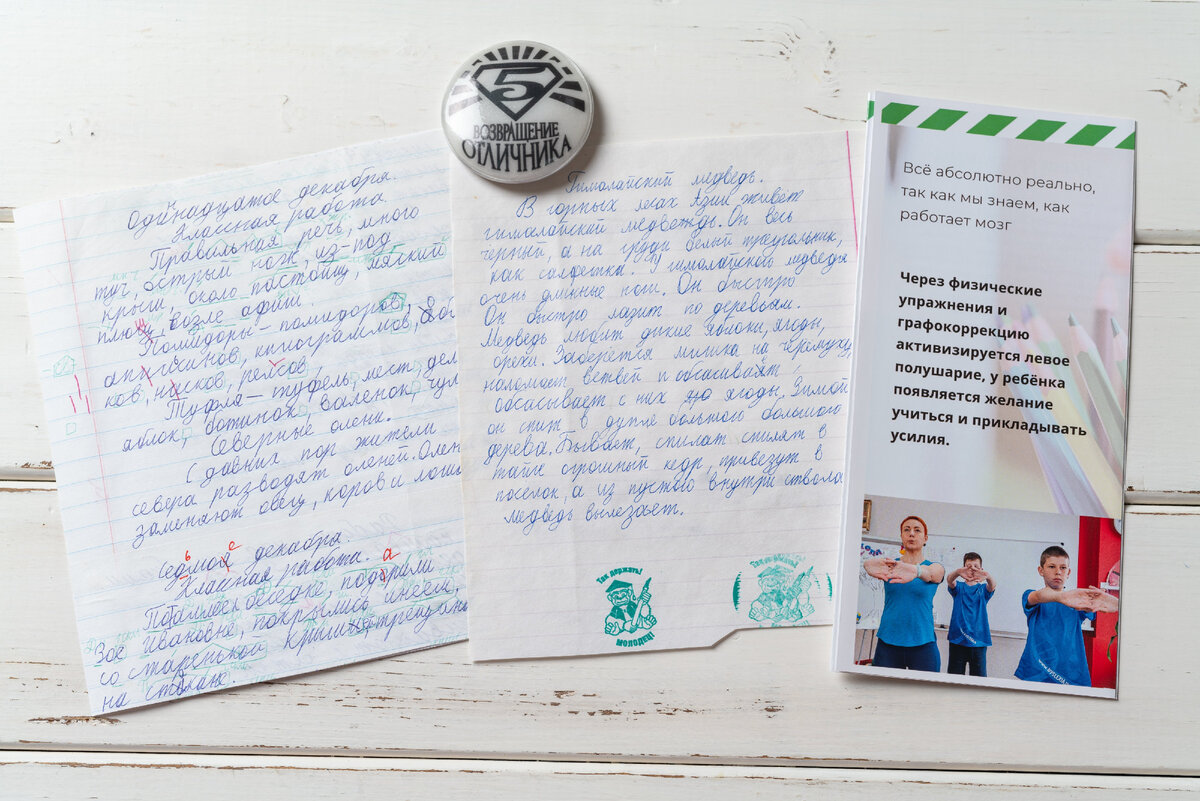 5
ВОЗВРАЩЕНИЕ
ОТЛИЧНИКА
Одиннадцатое декабря.
Классная работа
Правильная речь, много
туч, острый нож, из-под
крыши, около пастбищ, мягкий
плющ, возле афиш.
Помидоры - помидоров,
апельсинов, килограммов,
ков, носков, рельсов,
Туфля - туфель, мест, дел
яблок, ботинок, валенок, чул
Северные олени.
С давних пор жители
севера разводят оленей. Олен
заменяют овец, коров и лоша
Седьмое декабря.
Классная работа.
подарили
Зое Ивановне, покрылись инеем,
со старенькой крыши,
на стакане.
Гималайский медведь.
В горных лесах Азии живёт
гималайский медвеждь. Он весь
черный, а на груди белый треугольник,
как салфетка. У гималайского медведя
очень длинные ноги. Он быстро
Он быстро лазит по деревьям.
Медведь любит дикие яблоки, ягоды,
орехи. Заберется мишка на черемуху,
наломает ветвей и обсасывает,
обсасывает с них ягоды. Зимой
он спит в дупле большого большого
дерева. Бывает, спилят спилят в
тайге огромный кедр, привезут в
поселок, а из пустого внутри ствола
медведь вылезает.
Так держать!
МОЛОДЕЦ!
Так держать!
Всё абсолютно реально,
так как мы знаем, как
работает мозг
Через физические
упражнения и
графокоррекцию
активизируется левое
полушарие, у ребёнка
появляется желание
учиться и прикладывать
усилия.